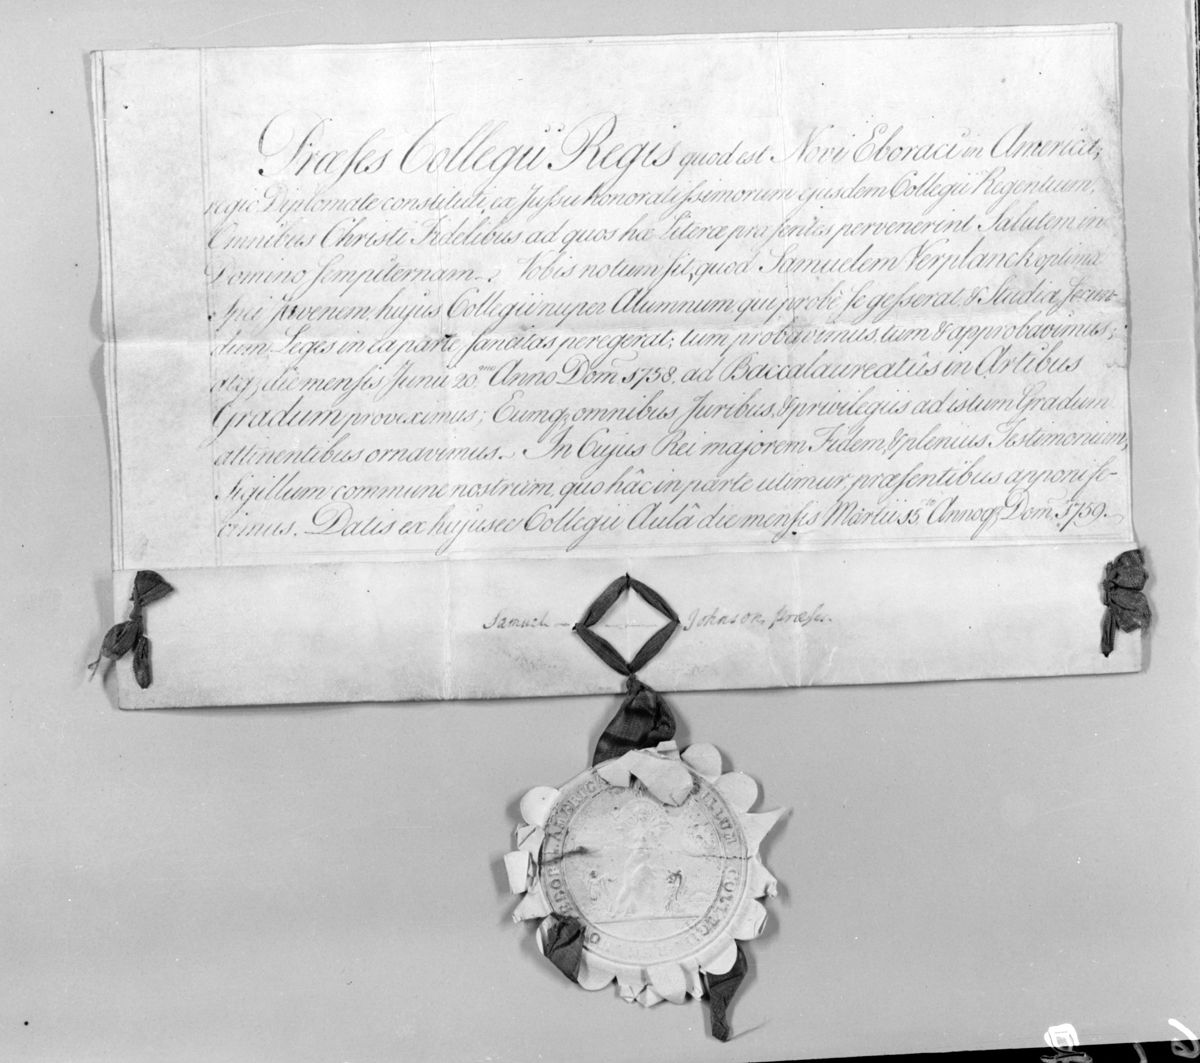 Præses Collegii Regis quod est Novi Eboraci in America,
regio Diplomate constituti, ex Jussu honoratissimorum ejusdem Collegii Regentium,
Omnibus Christi Fidelibus ad quos hæ Literæ præsentes pervenerint Salutem in
Domino sempiternam. Vobis notum sit, quod Samuelem Verplanck optimæ
spei juvenem, hujus Collegii nuper Alumnum, qui probè se gesserat, & Studia secun-
dum Leges in ea parte sancitas peregerat; tum probavimus, tum & approbavimus;
atq; die mensis Junii 20.mo Anno Dom̄ 1758, ad Baccalaureatûs in Artibus
Gradum proveximus; Eumq; omnibus Juribus, & privilegiis ad istum Gradum
attinentibus ornavimus. In Cujus Rei majorem Fidem, & plenius Testimonium,
Sigillum commune nostrum, quo hâc in parte utimur, præsentibus apponi fe-
cimus. Datis ex hujusce Collegii Aulâ die mensis Martii 15.to Annoq; Dom̄ 1759.
Samuel Johnson, Præses.
ILLUM COLLEGII
AMERICA